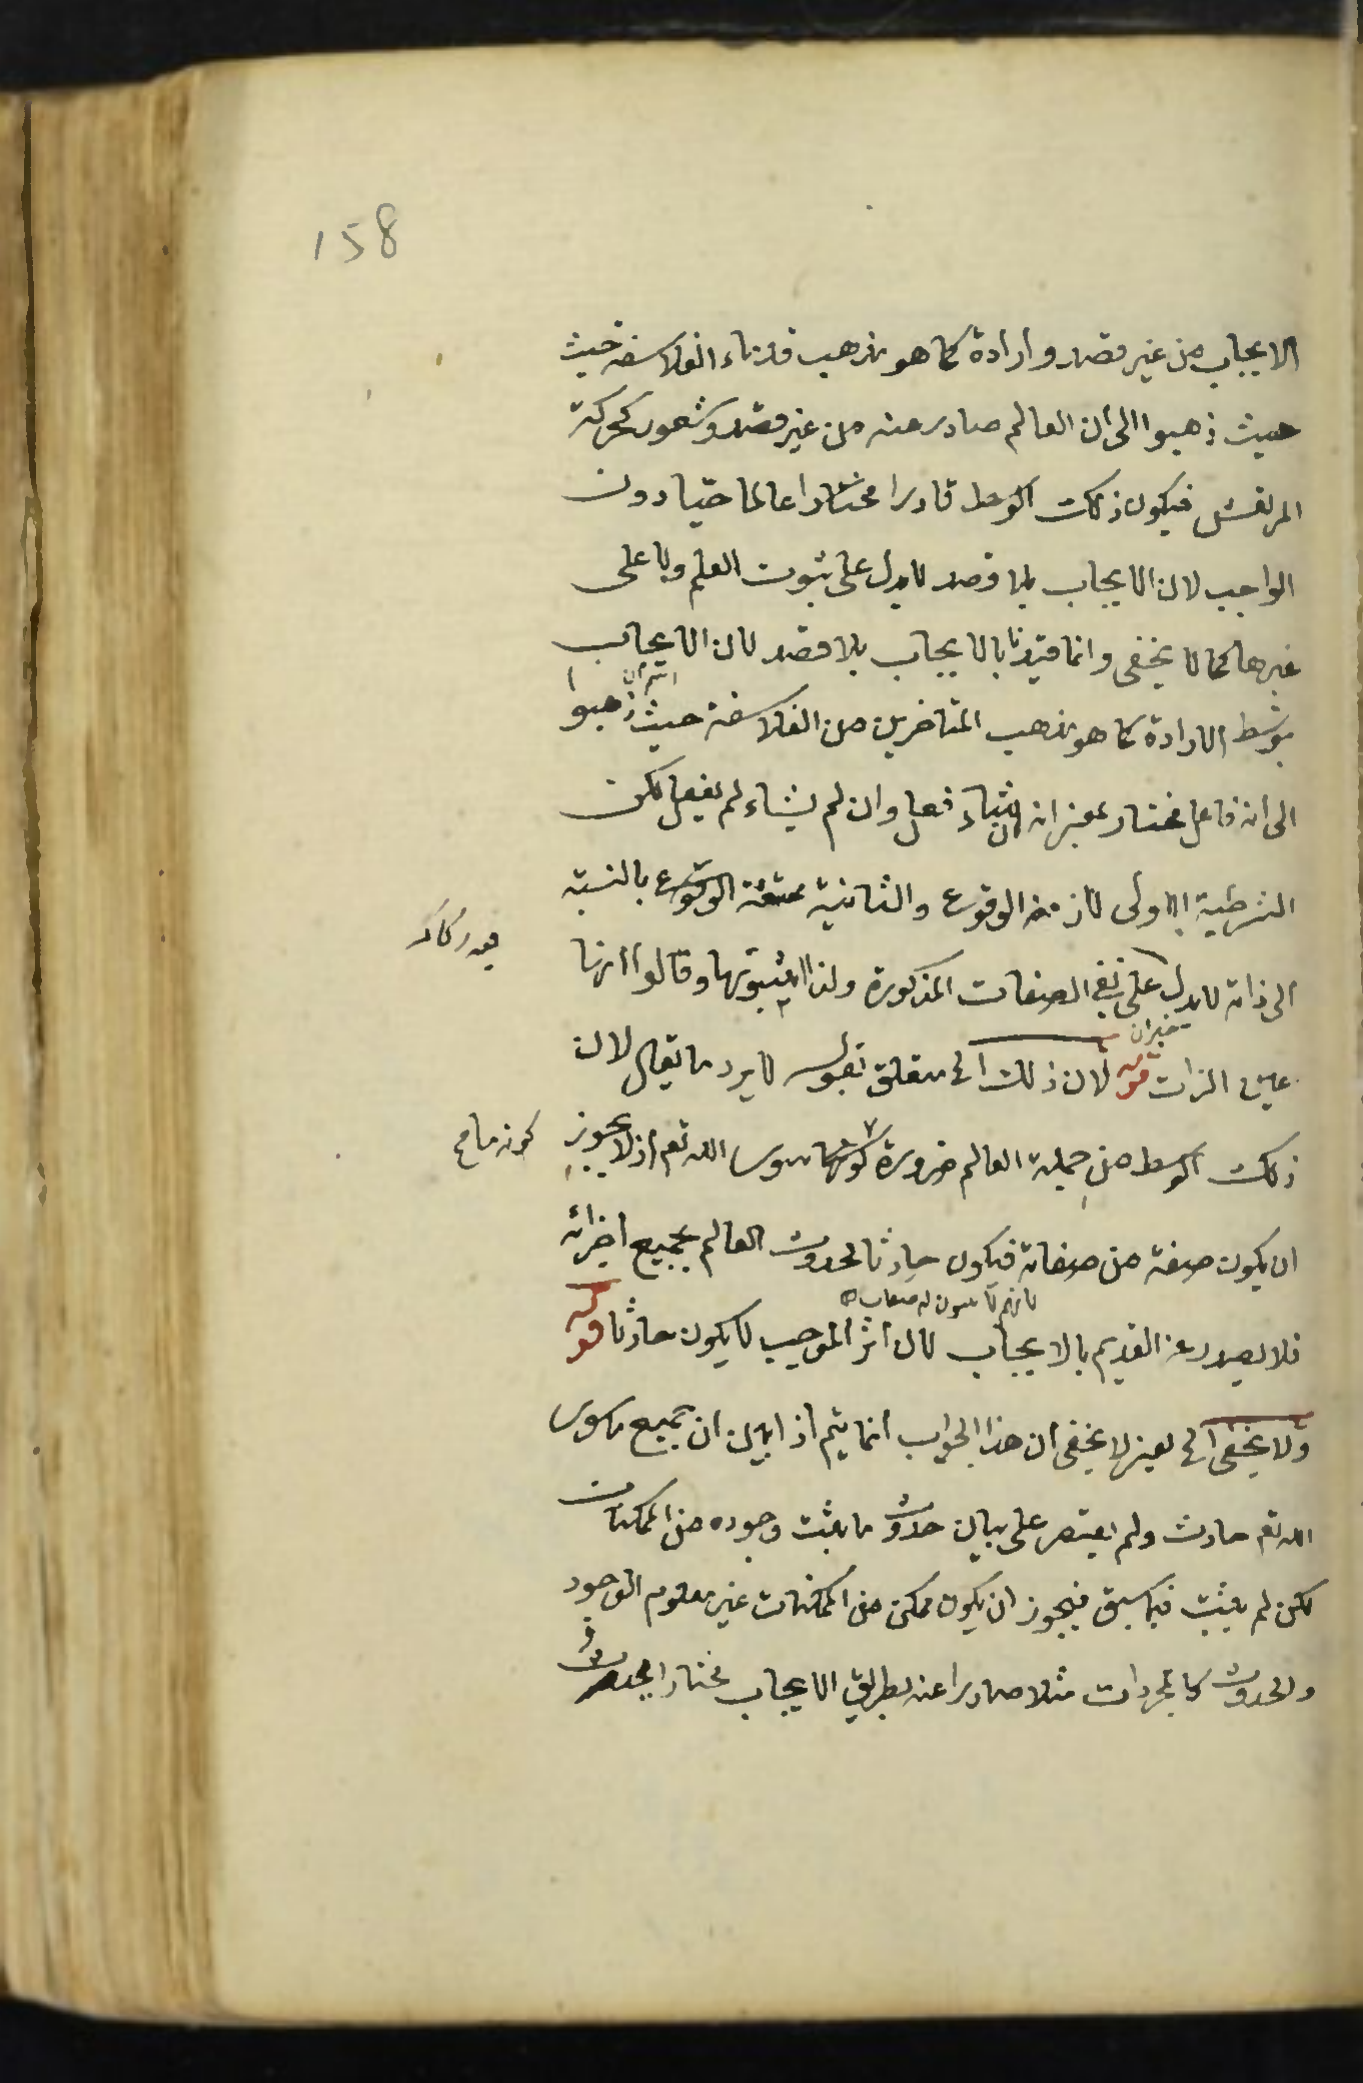 158
الايجاب من غير قصد وارادة كما هو مذهب قدماء الفلاسفة حيث
حيث ذهبوا الى ان العالم صادر عنه من غير قصد وشعور كحركة
المرتعش فيكون ذلك الوسط قادرا مختارا عالما حيا دون
الواجب لان الايجاب بلا قصد لا يدل على ثبوت العلم ولا على
غيرها كما لا يخفى وانما قيدنا بالايجاب بلا قصد لان الايجاب
بتوسط الارادة كما هو مذهب المتاخرين من الفلاسفة حيث ذهبوا
الى انه فاعل مختار بمعنى انه ان شاء فعل وان لم يشاء لم يفعل لكن
الشرطية الاولى لازمة الوقوع والثانية ممتنعة الوقوع بالنسبة
الى ذاته لا يدل على نفي الصفات المذكورة ولذا يثبتونها وقالوا انها
عين الذات قوله لان ذلك الخ متعلق بقوله لا يرد ما يقال لان
ذلك الوسط من جملة العالم ضرورة كونها سوى الله تعم اذ لا يجوز
ان يكون صفة من صفاته فيكون حادثا لحدوث العالم بجميع اجزائه
فلا يصدر عن القديم بالايجاب لان اثر الموجب لا يكون حادثا قوله
ولا يخفى الخ يعني لا يخفى ان هذا الجواب انما يتم اذا بين ان جميع ما سوى
الله تعم حادث ولم يقتصر على بيان حدوث ما يثبت وجوده من الممكنات
لكن لم يثبت فيما سبق فيجوز ان يكون ممكن من الممكنات غير معلوم الوجود
والحدوث كالمجردات مثلا صادرا عنه بطريق الايجاب مختارا